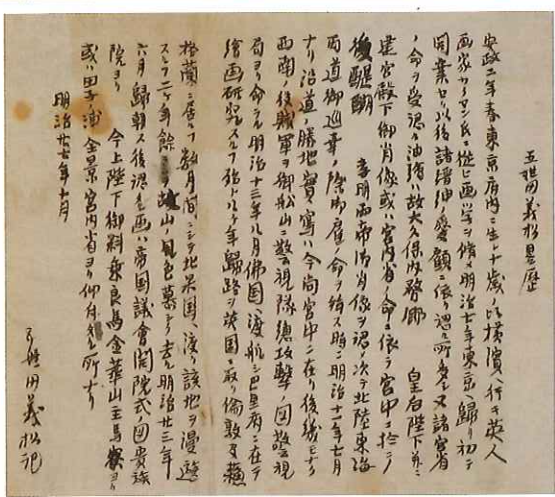 五姓田義松畧歴
安政二年春東京府内ニ生レ十歳ノ比横濱ヘ行キ英人
画家ワーグマン氏ニ從ヒ画学ヲ修メ明治十年東京ヘ歸リ初テ
開業セリ以後諸縉紳ノ愛顧ニ依リ認ル所多シ又諸官省
ノ命ヲ受認ル油繪ハ故大久保内務卿 皇后陛下并ニ
建宮殿下御肖像或ハ宮内省ノ命ニ依テ宮中ニ於テ
後醍醐 孝明両帝御肖像ヲ認ム次テ北陸東海
両道御巡幸ノ際御雇ノ命ヲ蒙ル時ニ明治十一年七月
ナリ沿道ノ勝地實ヲ寫ス今尚宮中ニ在リ後幾モナク
西南ノ役賊軍ヲ御船山ニ警視隊總攻撃ノ図警視
局ヨリ命アル明治十三年八月佛国ヘ渡航シ巴里府ニ在テ
繪画研究スルヿ殆ト九ケ年歸路ヲ英国ニ取リ倫敦及蘓
格蘭ニ居ルヿ数月間ニシテ北米国ヘ渡リ該地ヲ漫遊
スルヿ二ケ年餘 故山ノ風色慕フテ去ル明治廿三年
六月歸朝ス後認ル画ハ帝国議會開院式ノ図貴族
院ヨリ 今上陛下御料乗良馬金華山主馬寮ヨリ
或ハ田子ノ浦全景宮内省ヨリ仰付ル所ナリ
明治廿七年十月
五姓田義松記